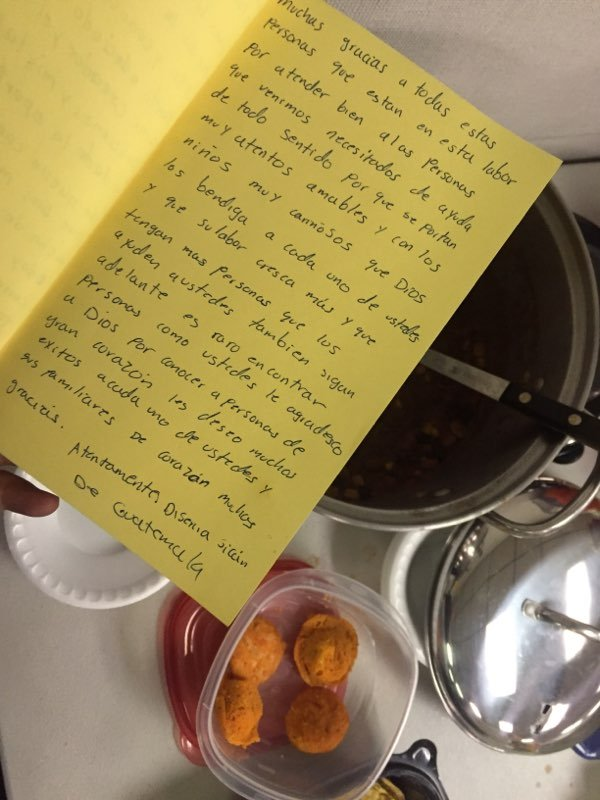 muchas gracias a todas estas
personas que estan en esta labor
por atender bien a las personas
que venimos necesitados de ayuda
de todo sentido por que se portan
muy atentos amables y con los
niños muy cariñosos que Dios
los bendiga a cada uno de ustedes
y que su labor cresca más y que
tengan mas personas que los
ayuden a ustedes tambien sigan
adelante es raro encontrar
personas como ustedes le agradesco
a Dios por conocer a personas de
gran corazón les deseo muchos
exitos a cada uno de ustedes y
sus familiares De corazón muchas
gracias.
Atentamente,
De Guatemala